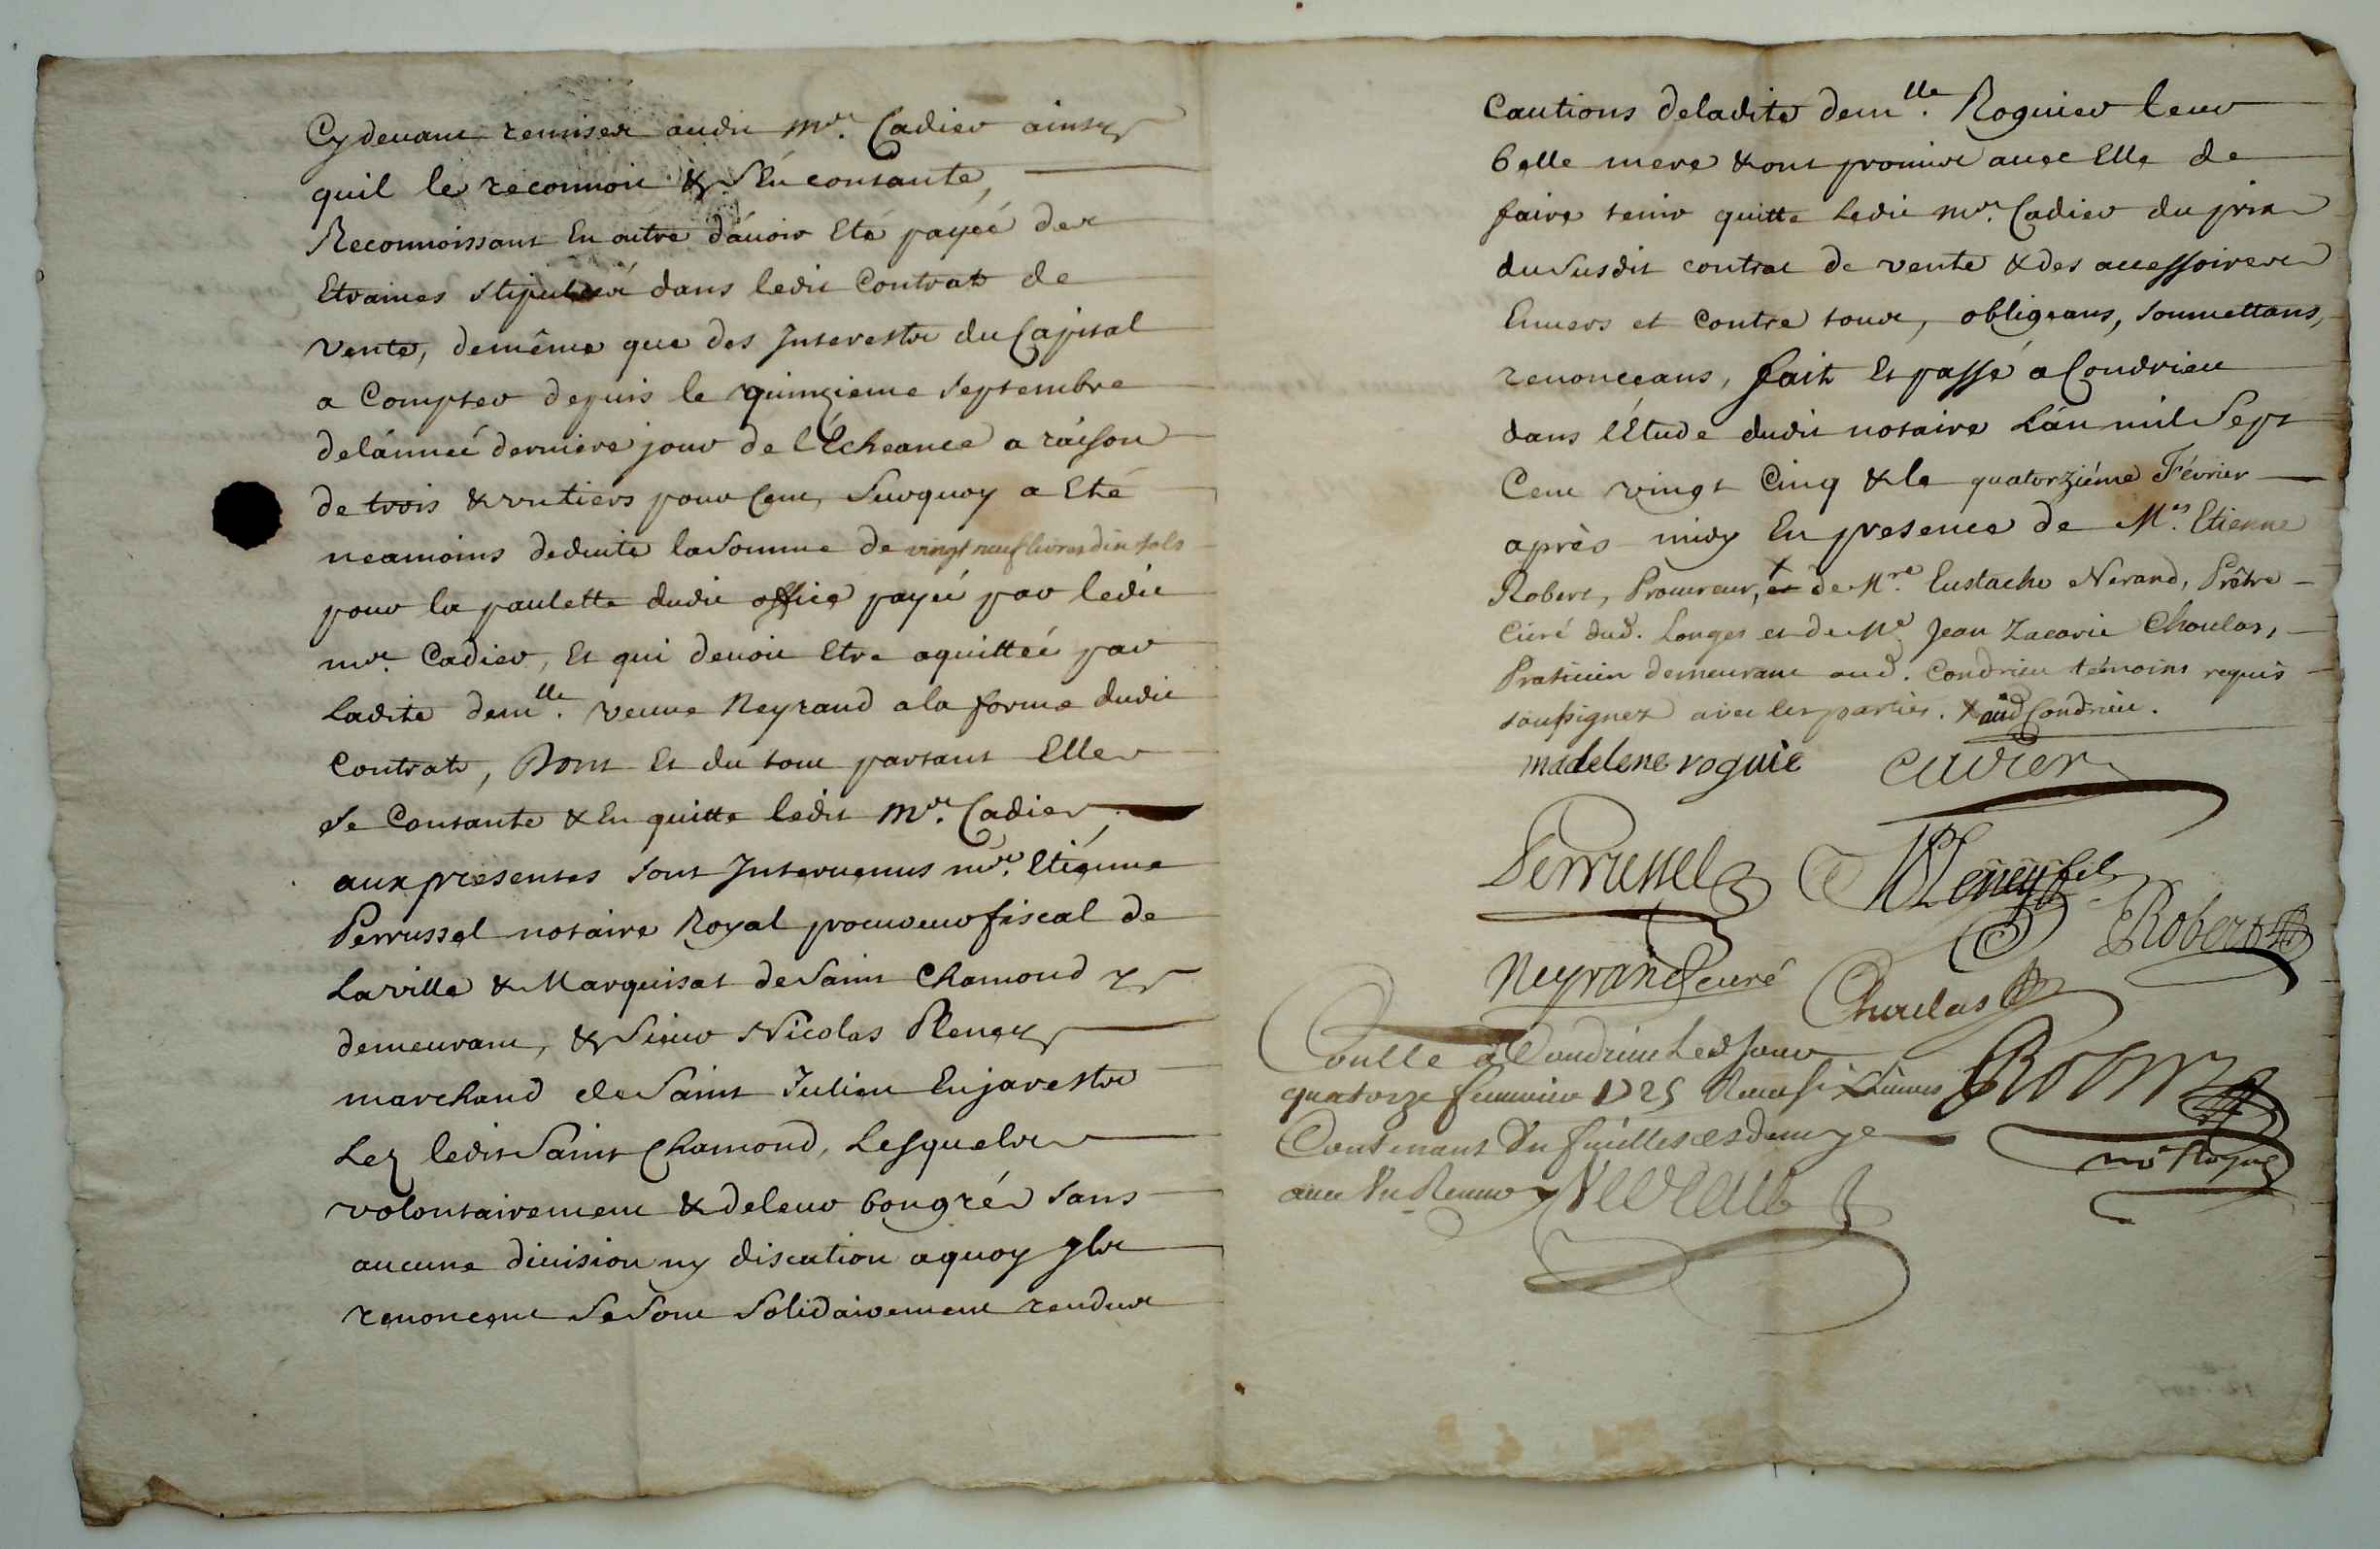 Cy devant remises audit Mre. Cadier ainsy
quil le reconnoit & s'en contante,
Reconnoissant En outre d'avoir Eté payéé des
Etraines stipuleés dans ledit Contrat de
vente, demême que des Interests du Capital
a Compter depuis le quinzieme septembre
delánnéé derniere jour de l'Echeance a raison
de trois & un tiers pour Cent, Surquoy a Eté
neamoins deduite la Somme de vingt neuf livres dix sols
pour la paulette dudit office payéé par ledit
mre. Cadier, Et qui devoit Etre aquittéé par
Ladite demlle. veuve Neyrand a la forme dudit
Contrat, Dont Et du tout partant Elle
se Contante & En quitte ledit Mre. Cadier,
aux presentes sont Intervenus mre. Etienne
Perrussel notaire Royal procureur fiscal de
La ville & Marquisat de Saint Chamond y
demeurant, & Sieur Nicolas Pleney
marchand de Saint Julien En jarests
Lez ledit Saint Chamond, Lesquels
volontairement & deleur bongré sans
aucune division ny discution aquoy Ils
renoncent Se Sont Solidairement rendus
Cautions deladite demlle. Roguier leur
belle mere & ont promis avec Elle de
faire tenir quitte Ledit mre. Cadier du prix
du Susdit contrat de vente & des accessoires
Envers et Contre tous, obligeans, Soumettans,
renonceans, fait Et passé a Condrieu
dans l'Etude dudit notaire L'an mil Sept
Cent vingt Cinq & le quatorziéme Février
après midy En presence de Me. Etienne
Robert, Procureur, X et de Mre. Eustache Nerand, Prêtre
Curé dud. Longes et de Me Jean Zacarie Choulas,
Praticien demeurant aud. Condrieu témoins requis
soussignez avec les parties. X aud Condrieu.
madelene roguie Cadier
Perrussel Pleney fils
Robert
Neyrand curé Choulas
Conllé à Condrieu Led jour
quatorze fevrier 1725 Receu six livres
Contenant Un feuillet et demye
avec Un Renvoy
no Royal